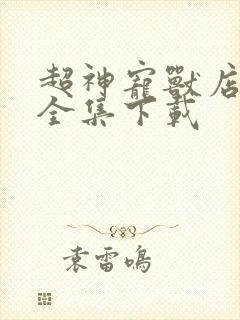 超神寵獸店
全集下載
袁雷鳴